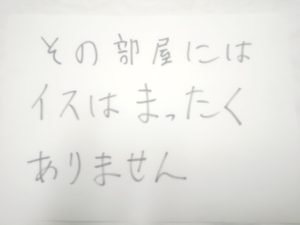 その部屋には
イスはまったく
ありません